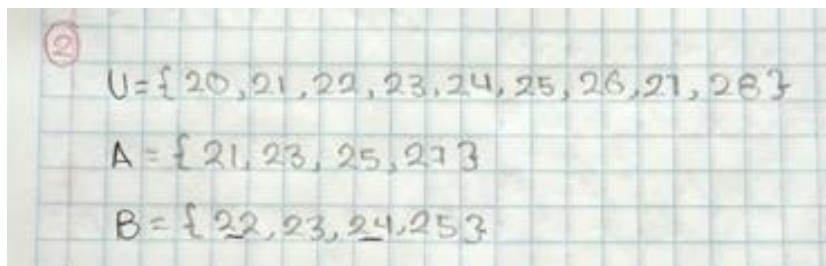 2
U={20,21,22,23,24,25,26,27,28}
A={21,23,25,27}
B={22,23,24,25}